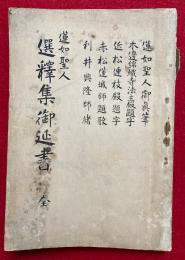 蓮如聖人御真筆
木邊錦織寺法主殿題字
佐松連枝殿題字
赤松蓮城師題歌
利井興隆師緒
蓮如聖人
選擇集御延書 全